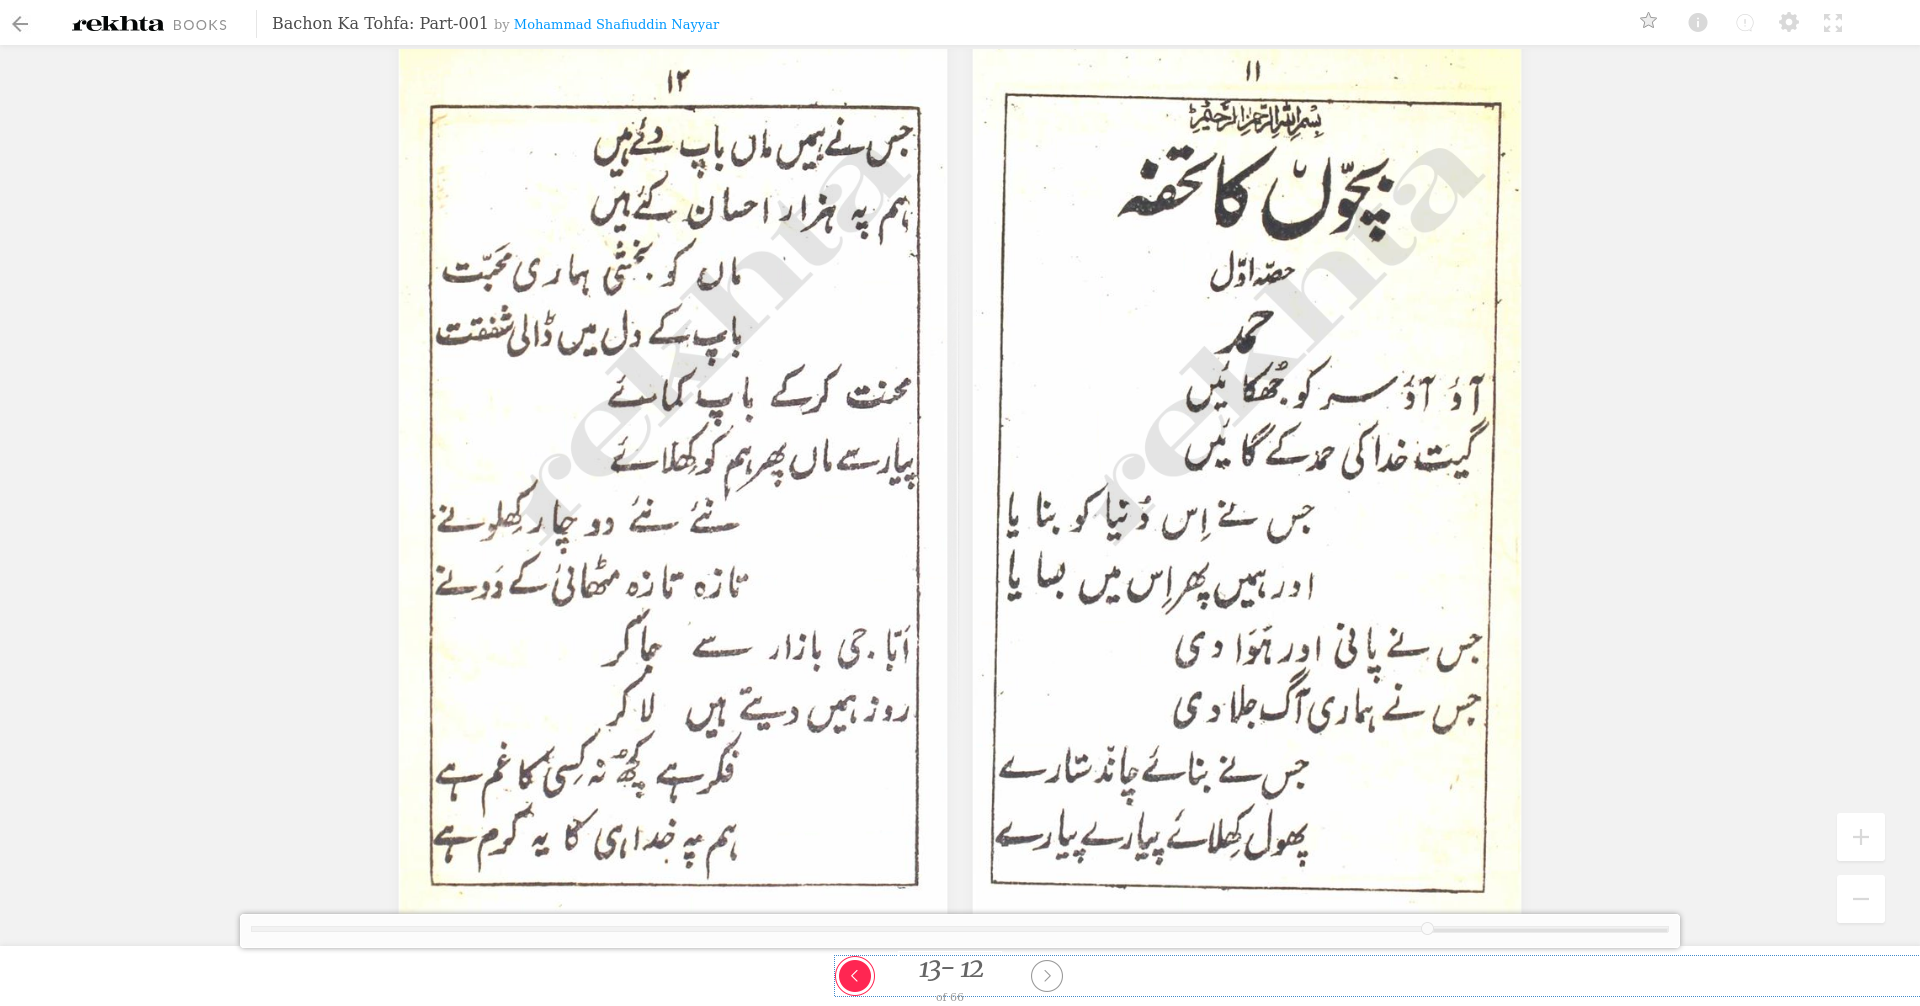 rekhta BOOKS
Bachon Ka Tohfa: Part-001 by Mohammad Shafiuddin Nayyar
۱۱
بِسْمِ اللّٰہِ الرَّحْمٰنِ الرَّحِیْمِ
بچّوں کا تحفہ
حصّہ اوّل
حمد
آؤ آؤ سر کو جُھکائیں
گیت خدا کی حمد کے گائیں
جس نے اِس دُنیا کو بنایا
اور ہمیں پھر اِس میں بسایا
جس نے پانی اور ہَوَا دی
جس نے ہماری آگ جلا دی
جس نے بنائے چاند ستارے
پھول کِھلائے پیارے پیارے
rekhta
۱۲
جس نے ہمیں ماں باپ دئے ہیں
ہم پہ ہزار احسان کئے ہیں
ماں کو بخشی ہماری محبّت
باپ کے دل میں ڈالی شفقت
محنت کرکے باپ کمائے
پیار سے ماں پھر ہم کو کِھلائے
نئے نئے دو چار کِھلونے
تازہ تازہ مٹھائی کے دَونے
اَبّا جی بازار سے جاکر
روز ہمیں دیتے ہیں لاکر
فکر ہے کچھ نہ کِسی کا غم ہے
ہم پہ خدا ہی کا یہ کرم ہے
rekhta
13- 12
of 66